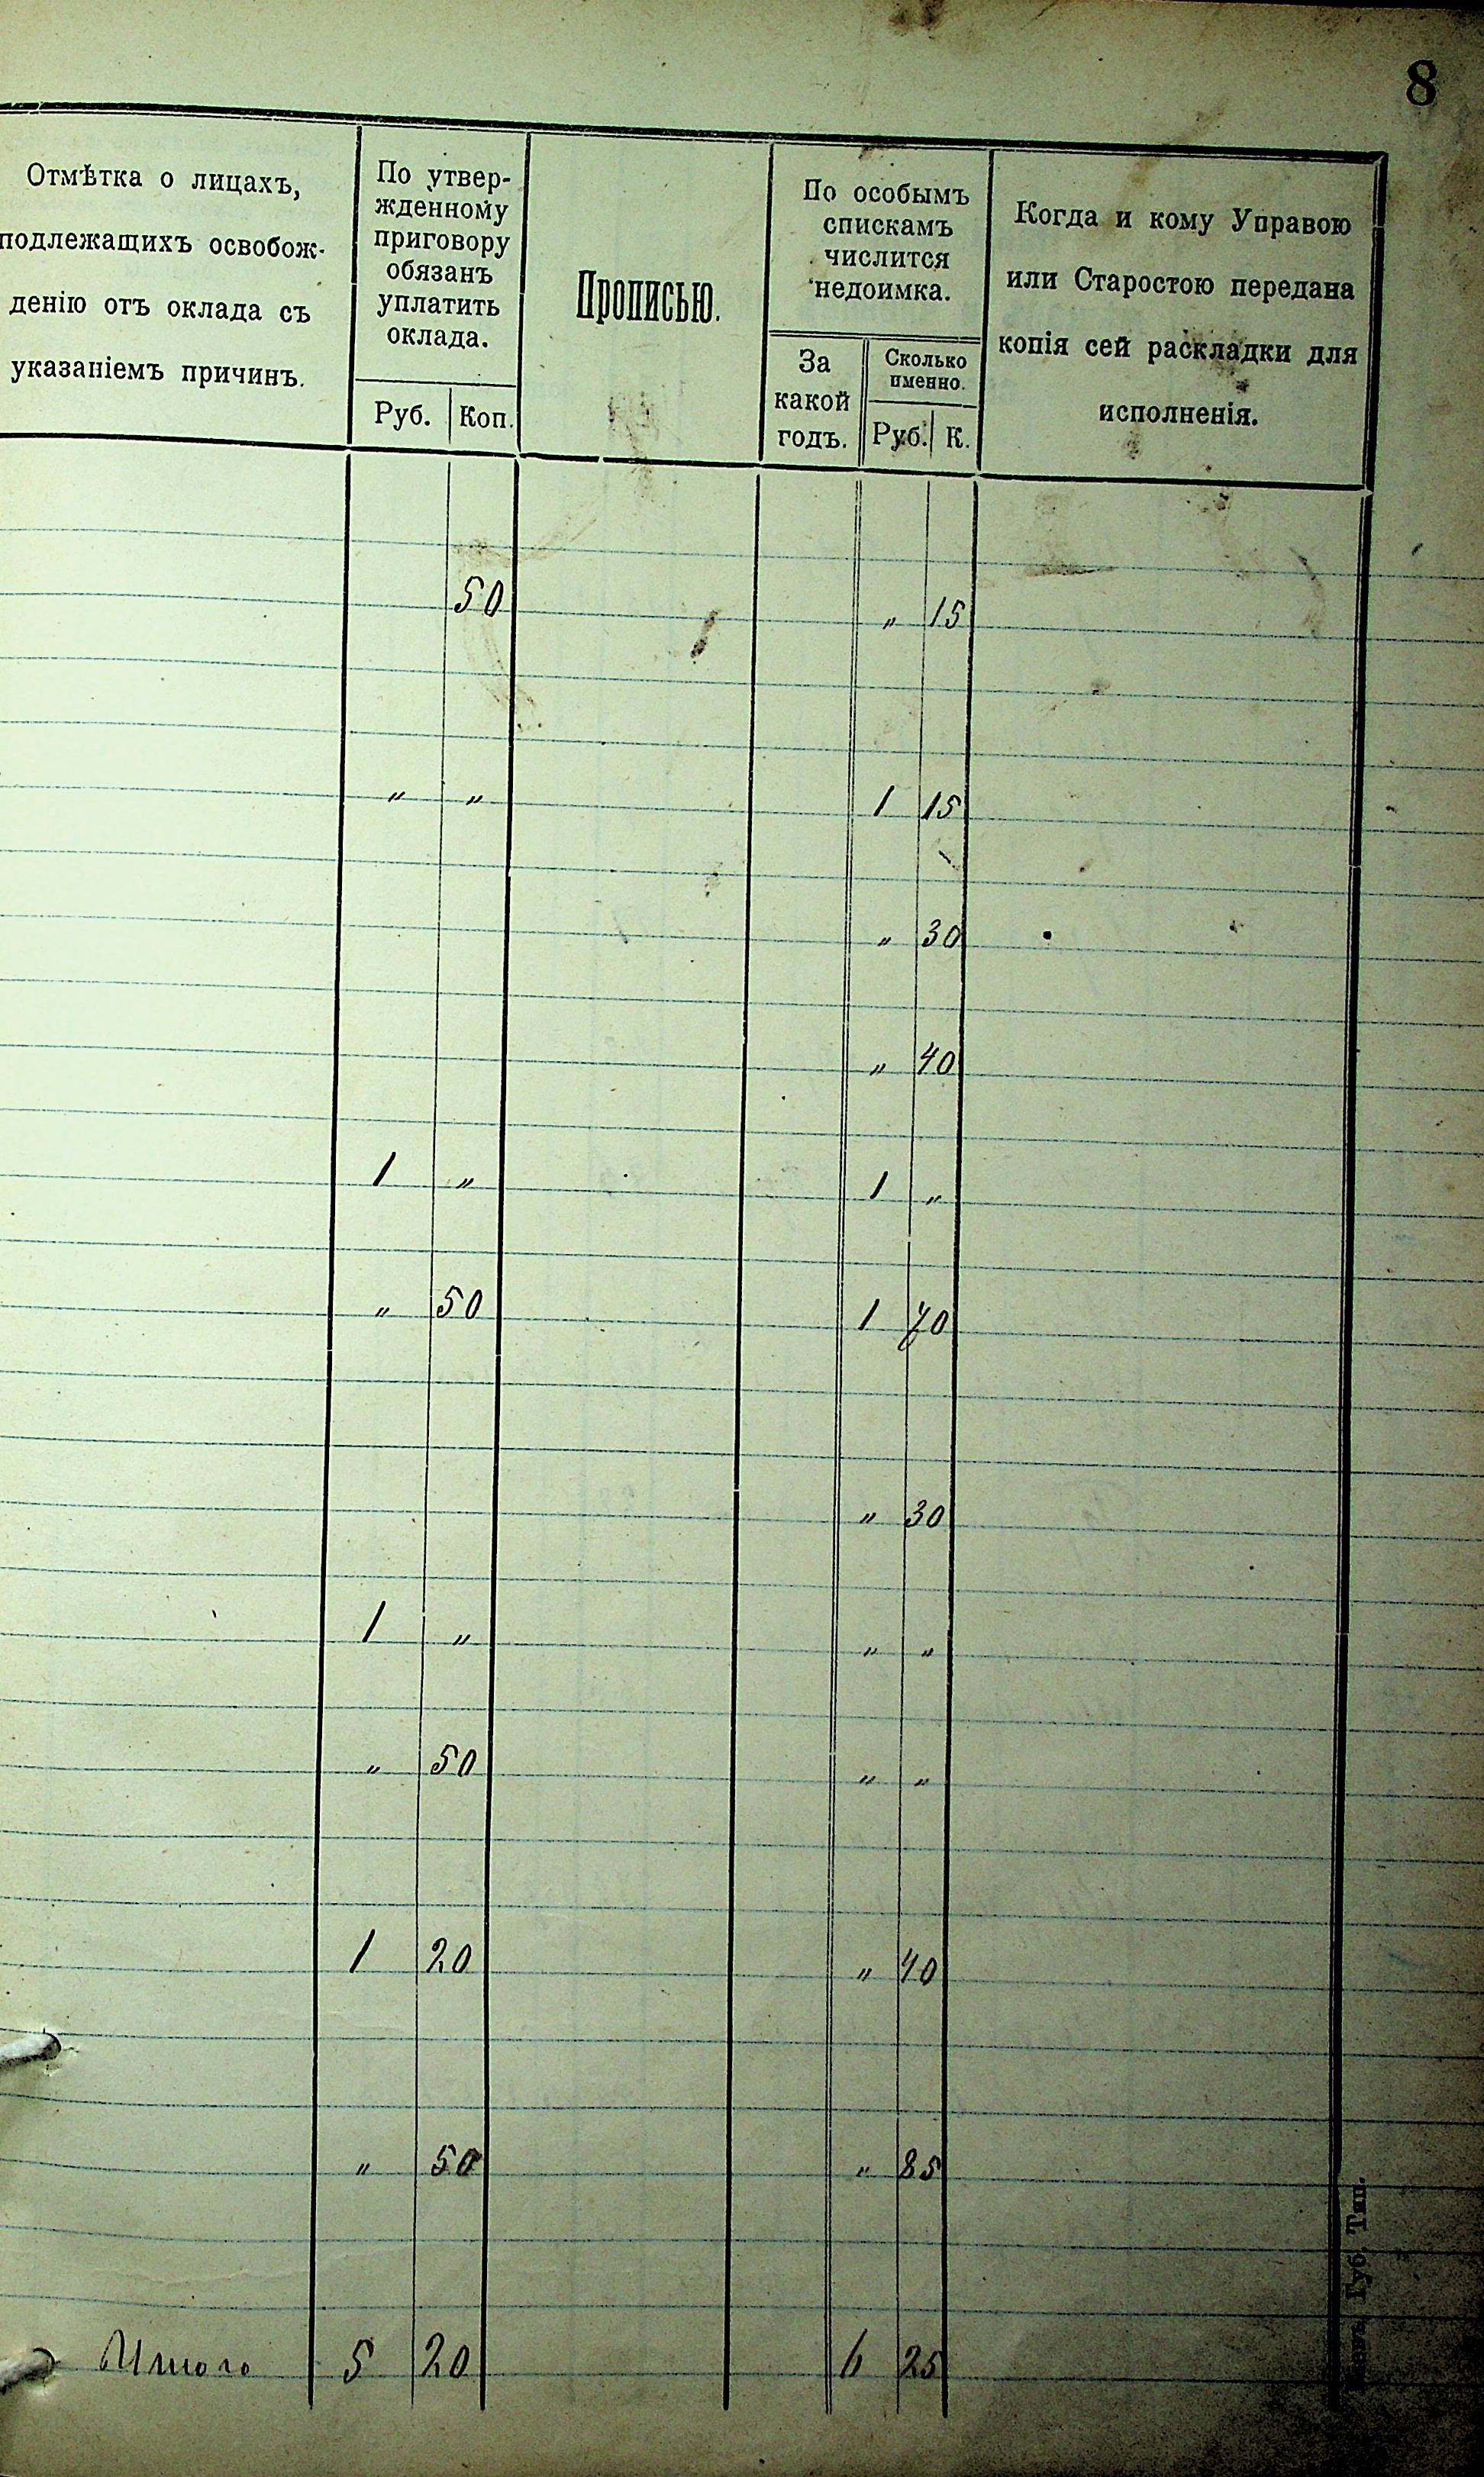 8
Отмѣтка о лицахъ,
подлежащихъ освобож-
денію отъ оклада съ
указаніемъ причинъ.
По утвер-
жденному
приговору
обязанъ
уплатить
оклада.
Руб. Коп.
Прописью.
По особымъ
спискамъ
числится
недоимка.
За
какой
годъ.
Сколько
именно.
Руб. К.
Когда и кому Управою
или Старостою передана
копія сей раскладки для
исполненія.
50 „ 15
„ „ 1 15
„ 30
„ 40
1 „ 1 „
„ 50 1 70
„ 30
1 „ „ „
„ 50 „ „
1 20 „ 40
„ 50 „ 85
Итого 5 20 6 25
Губ. Тип.